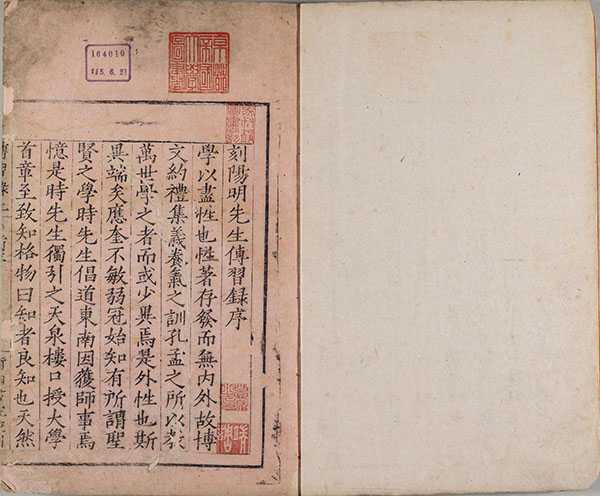 刻陽明先生傳習録序
學以盡性也性著存發而無内外故博
文約禮集義養氣之訓孔孟之所以教
萬世學之者而或少異焉是外性也斯
異端矣應奎不敏弱冠始知有所謂聖
賢之學時先生倡道東南因獲師事焉
憶是時先生獨引之天泉樓口授大學
首章至致知格物曰知者良知也天然